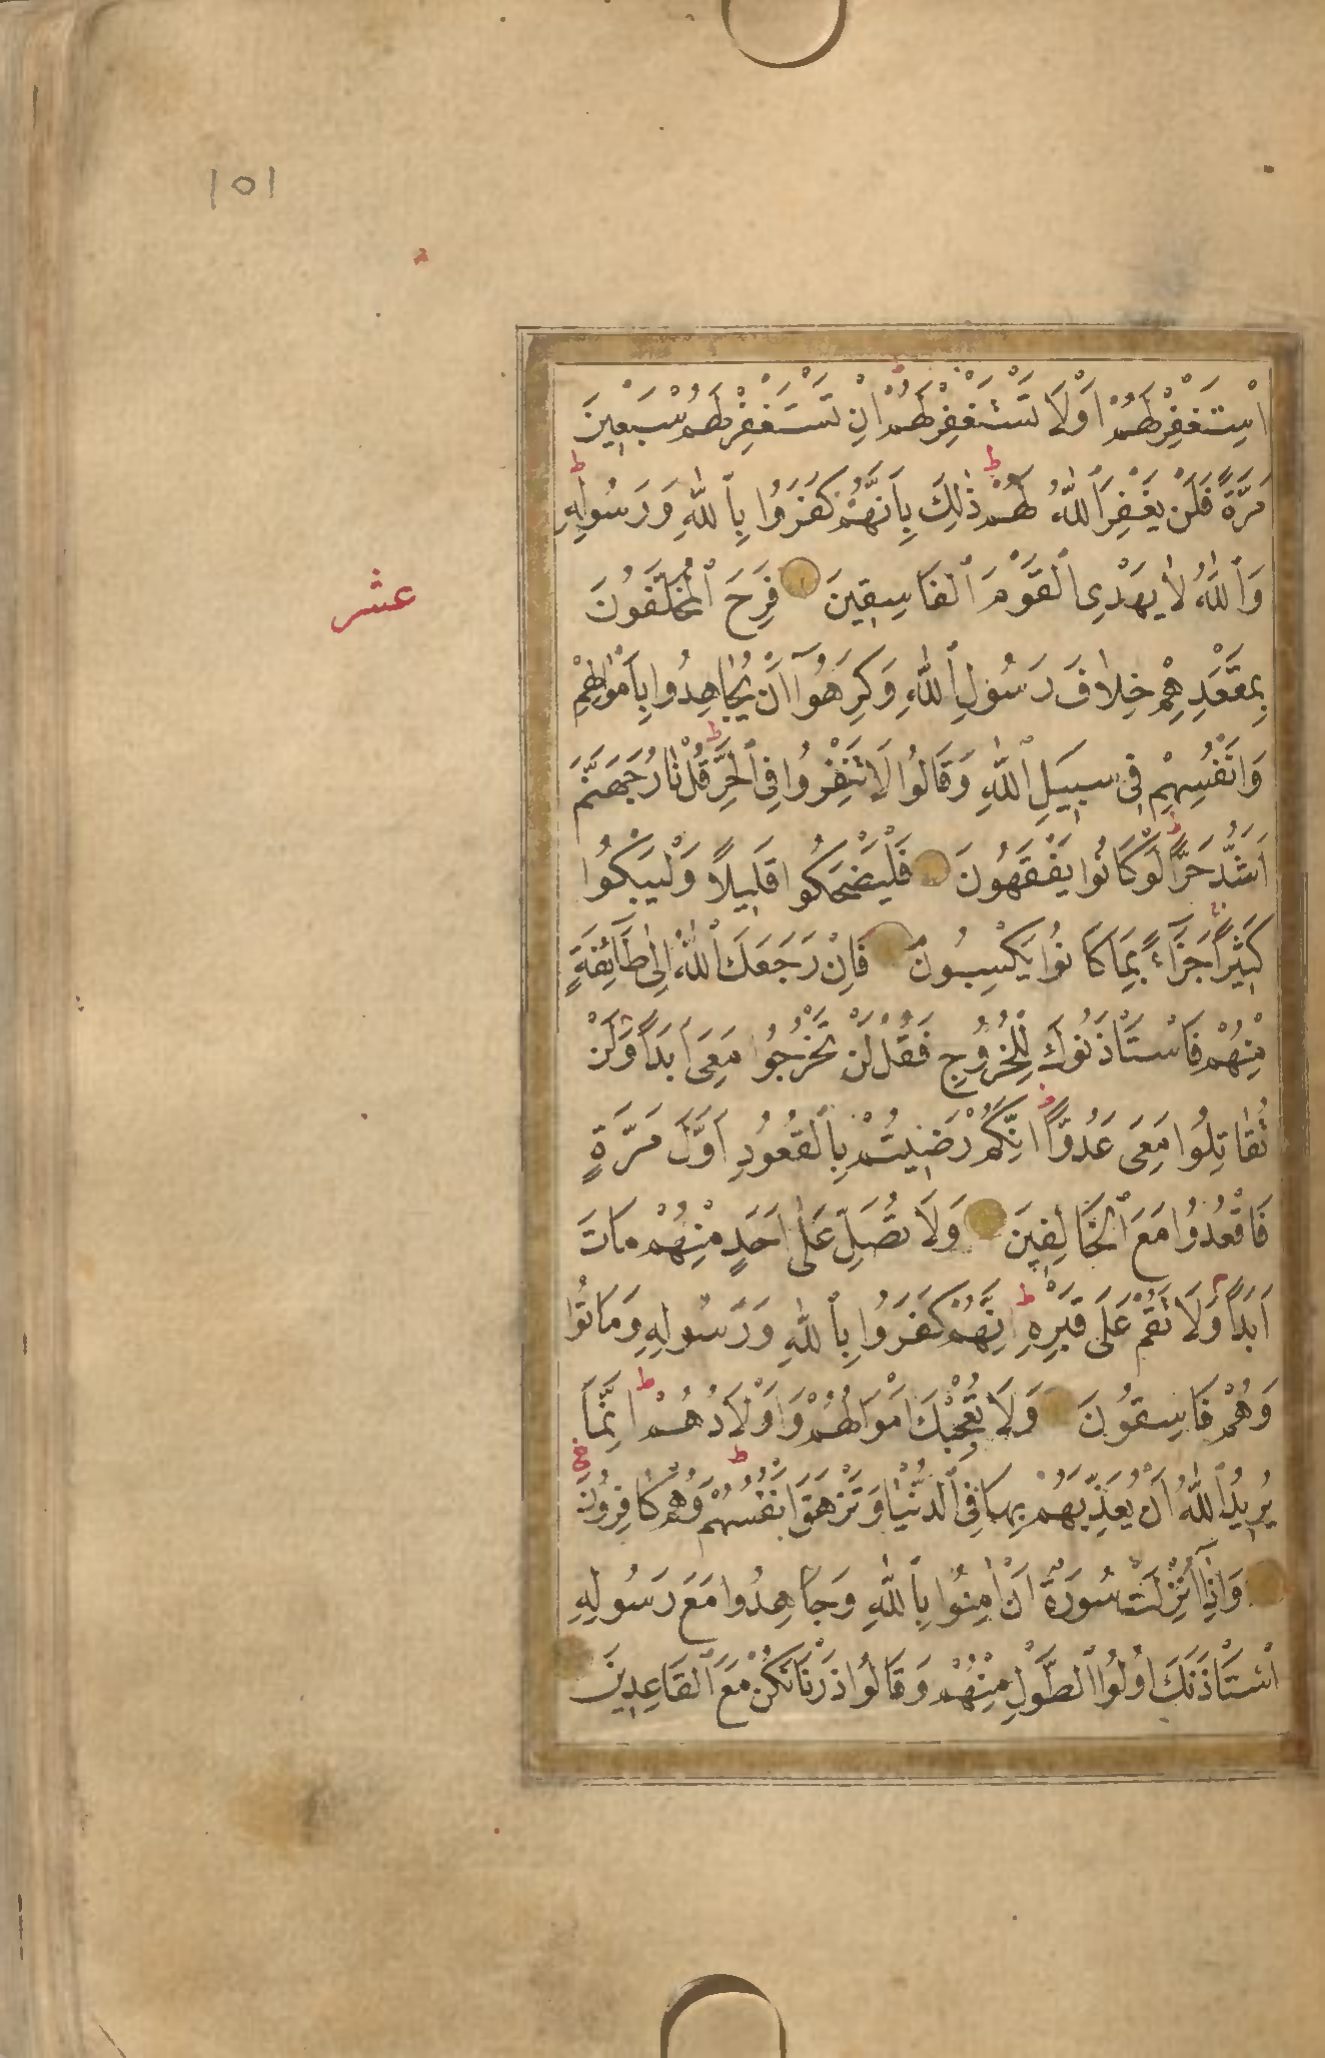 ١٥١
اِسْتَغْفِرْ لَهُمْ اَوْلَا تَسْتَغْفِرْ لَهُمْ اِنْ تَسْتَغْفِرْ لَهُمْ سَبْعِينَ
مَرَّةً فَلَنْ يَغْفِرَ ٱللّٰهُ لَهُمْ ذٰلِكَ بِاَنَّهُمْ كَفَرُوا بِٱللّٰهِ وَرَسُولِهِ
وَٱللّٰهُ لَا يَهْدِى ٱلْقَوْمَ ٱلْفَاسِقِينَ فَرِحَ ٱلْمُخَلَّفُونَ
عشر
بِمَقْعَدِهِمْ خِلَافَ رَسُولِ ٱللّٰهِ وَكَرِهُوٓا اَنْ يُجَاهِدُوا بِاَمْوَالِهِمْ
وَاَنْفُسِهِمْ فِى سَبِيلِ ٱللّٰهِ وَقَالُوا لَا تَنْفِرُوا فِى ٱلْحَرِّ قُلْ نَارُ جَهَنَّمَ
اَشَدُّ حَرًّا لَوْ كَانُوا يَفْقَهُونَ فَلْيَضْحَكُوا قَلِيلًا وَلْيَبْكُوا
كَثِيرًا جَزَآءً بِمَا كَانُوا يَكْسِبُونَ فَاِنْ رَجَعَكَ ٱللّٰهُ اِلٰى طَآئِفَةٍ
مِنْهُمْ فَاسْتَاْذَنُوكَ لِلْخُرُوجِ فَقُلْ لَنْ تَخْرُجُوا مَعِىَ اَبَدًا وَلَنْ
تُقَاتِلُوا مَعِىَ عَدُوًّا اِنَّكُمْ رَضِيتُمْ بِٱلْقُعُودِ اَوَّلَ مَرَّةٍ
فَاقْعُدُوا مَعَ ٱلْخَالِفِينَ وَلَا تُصَلِّ عَلٰى اَحَدٍ مِنْهُمْ مَاتَ
اَبَدًا وَلَا تَقُمْ عَلٰى قَبْرِهِ اِنَّهُمْ كَفَرُوا بِٱللّٰهِ وَرَسُولِهِ وَمَاتُوا
وَهُمْ فَاسِقُونَ وَلَا تُعْجِبْكَ اَمْوَالُهُمْ وَاَوْلَادُهُمْ اِنَّمَا
يُرِيدُ ٱللّٰهُ اَنْ يُعَذِّبَهُمْ بِهَا فِى ٱلدُّنْيَا وَتَزْهَقَ اَنْفُسُهُمْ وَهُمْ كَافِرُونَ
وَاِذَآ اُنْزِلَتْ سُورَةٌ اَنْ اٰمِنُوا بِٱللّٰهِ وَجَاهِدُوا مَعَ رَسُولِهِ
اسْتَاْذَنَكَ اُولُوا ٱلطَّوْلِ مِنْهُمْ وَقَالُوا ذَرْنَا نَكُنْ مَعَ ٱلْقَاعِدِينَ